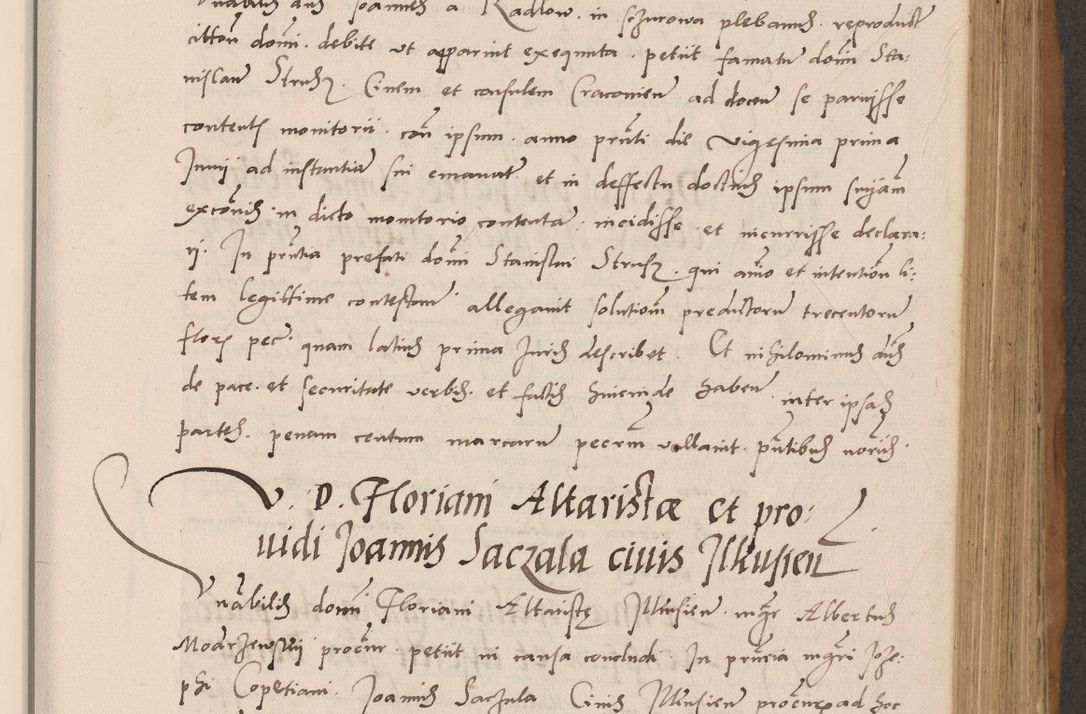 nabilis dns Joannes a Radlow in schurowa plebanus reproducit
citton domi debite ut apparuit exequuta petiit famatu domi Sta:
nislaue Strusz Ciuem et consulem Cracouien ad docen se paruisse
contentis monitorii con ipsum anno pnti die vigesima prima
Junii ad instantia sui emanat et in deffectu doctius ipsum suam
exconis in dicto monitorio contenta incidisse et incurrisse declara:
ri. In pntia prefati domi Stanislai Strusz qui aio et intention li:
tem legittime contestan allegauit solution predictoru trecentoru
flore pec quam latius prima Juris describet. Et nihilominus dns
de pace et securitate verbis et factis hincinde haben inter ipsas
partes penam centum marcaru peern vallauit pntibus noriis
V. D. Floriani Altaristæ et pro:
uidi Joannis Saczala ciuis Ilkusien
Vnabilis domi Floriani Altaristę Illkusien mgr Albertus
Modrzewski procur petiit in causa concludi In pntia mgri Jose:
phi Copetiani Joannis Saczala Ciuis Illkusien procur ad hoc